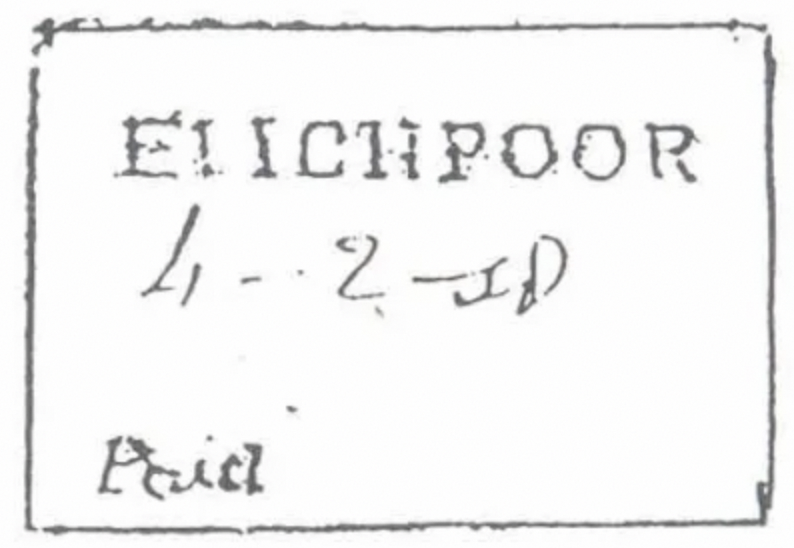 ELICHPOOR
4 - 2 -
Paid